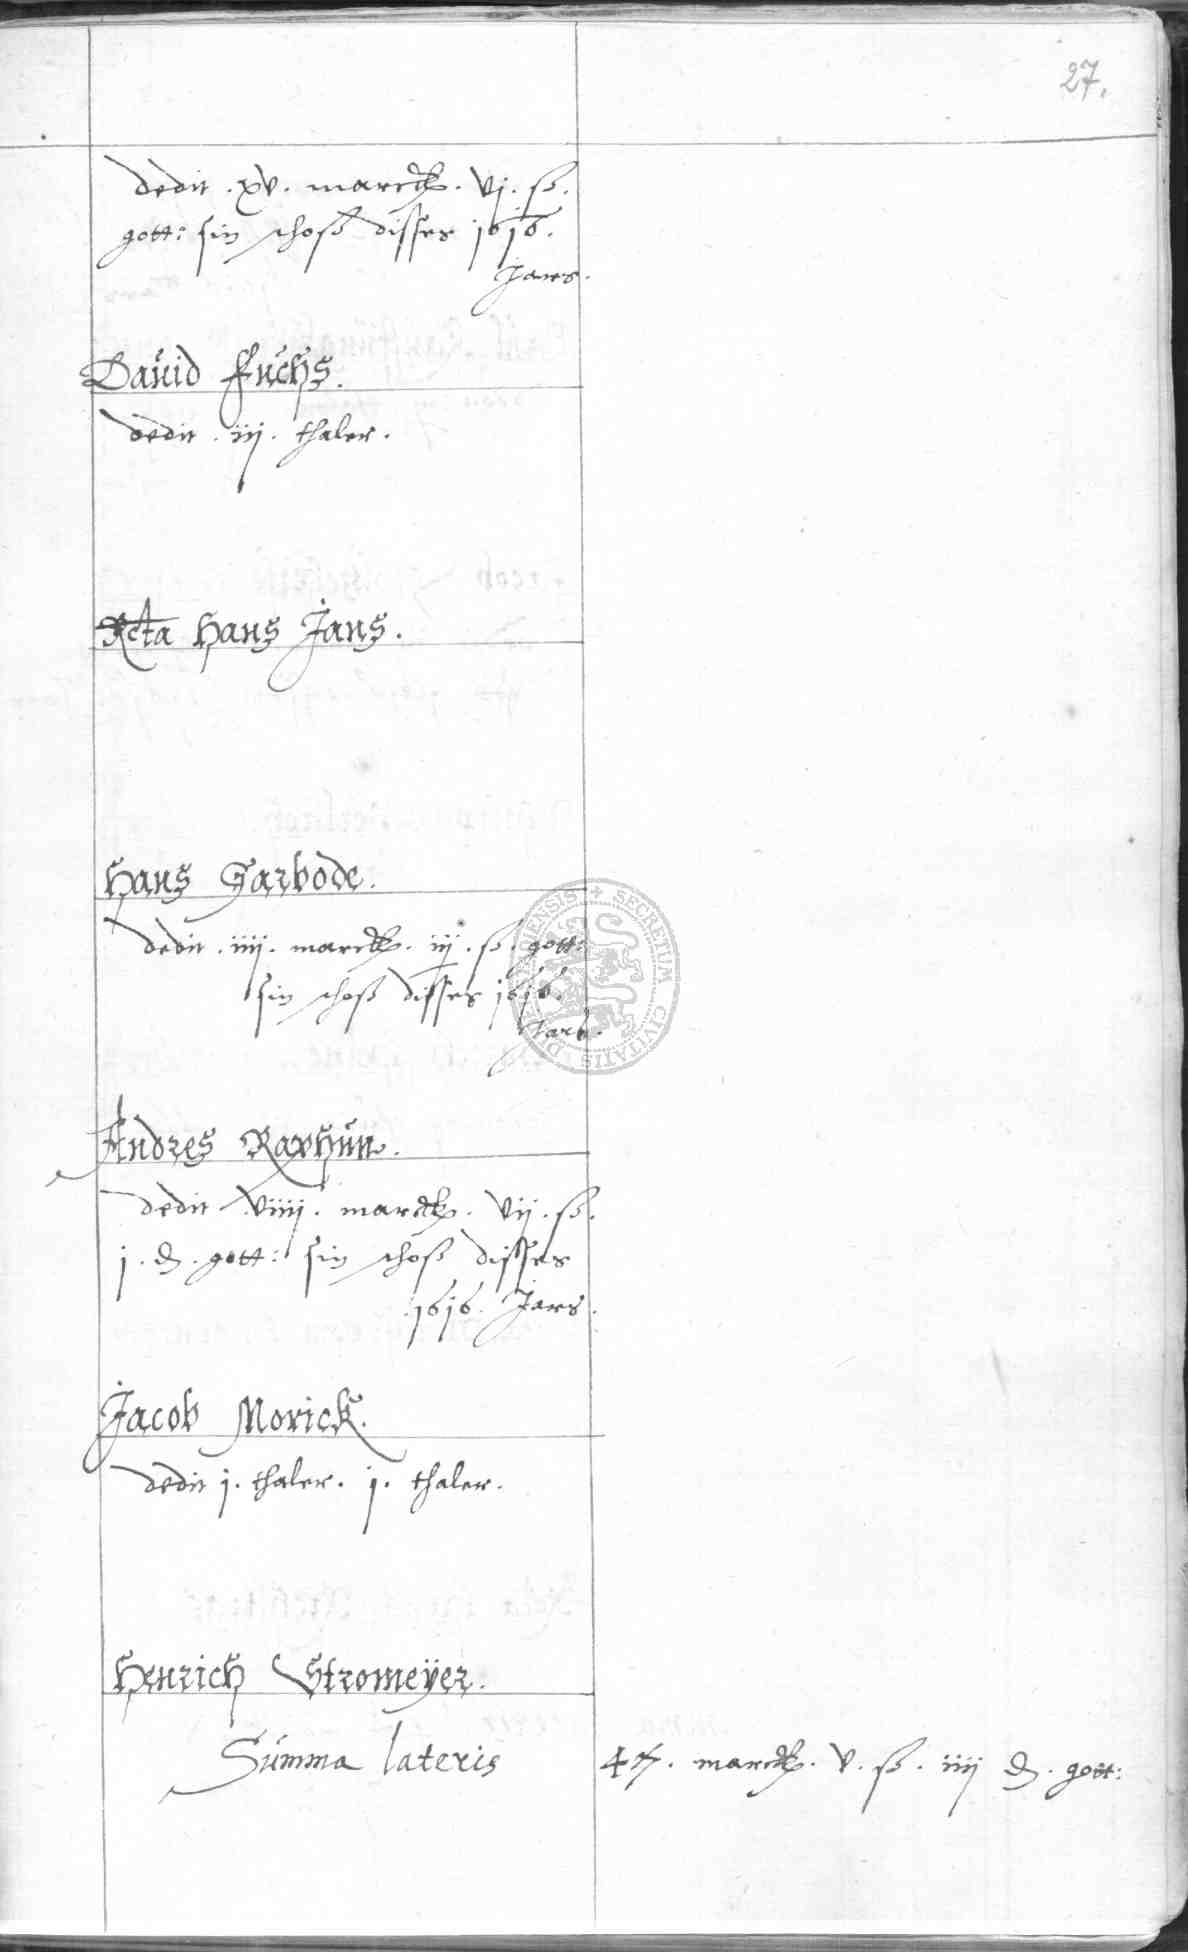 27.
dedit . xv . marck . vj . ß .
gott: sin schoß disses 1616.
Jares.
Dauid Fuchs.
dedit . iij . thaler .
Relicta Hans Jans.
Hans Garbode.
dedit . iiij . marck . iij . ß . gott:
sin schoß disses 1616.
Jars.
Andres Raphun.
dedit viiij . marck . vij . ß .
j . d . gott: sin schoß disses
1616. Jars.
Jacob Morick.
dedit j . thaler . j . thaler .
Henrich Stromeyer.
Summa lateris 47 . marck . v . ß . iiij d . gott:
SECRETUM CIVITATIS